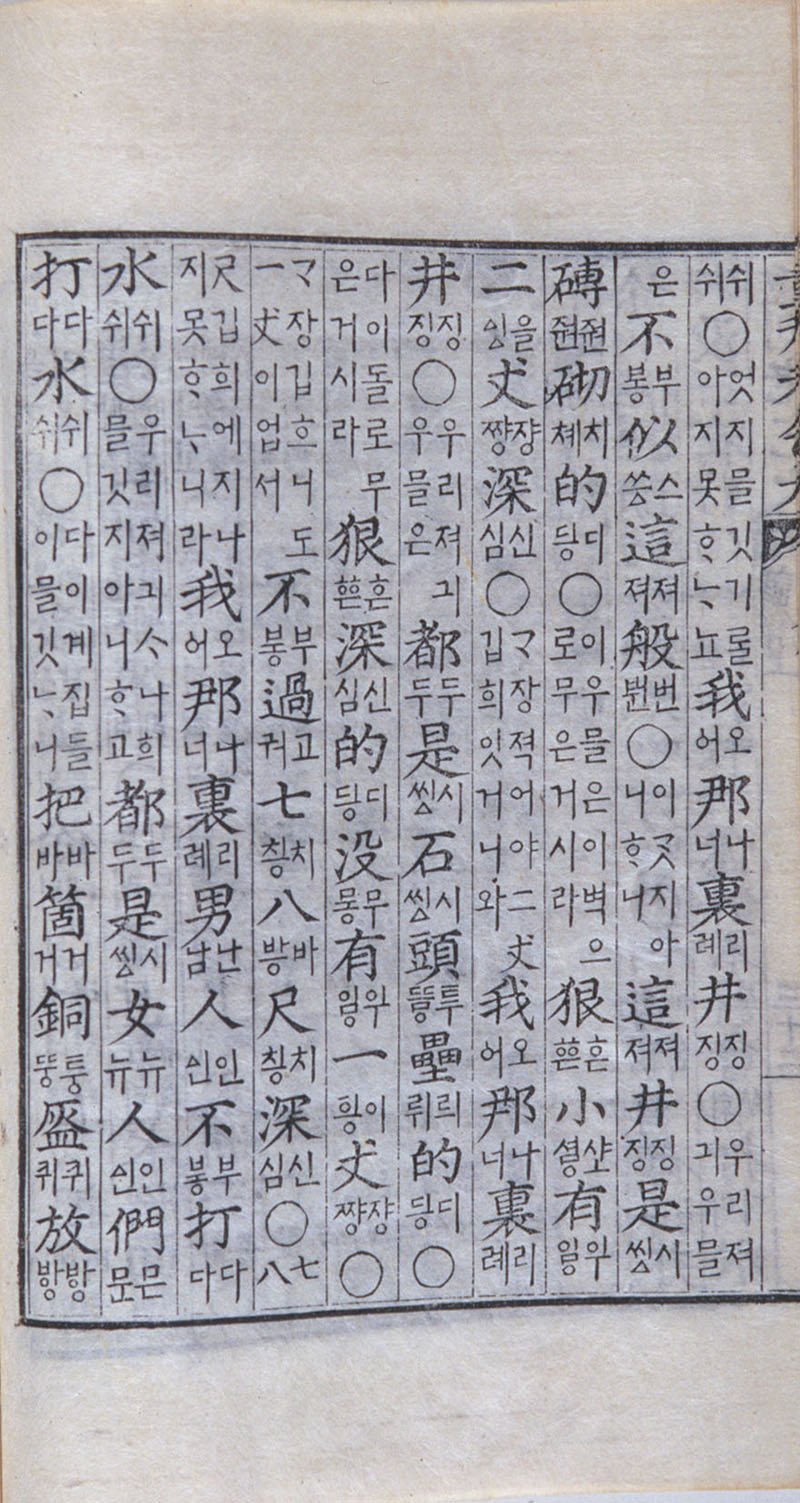 쉬쉬○엇지믈깃기롤아지못ᄒᆞᄂᆞ뇨我어오那너나裏례리井징징○우리져긔우믈
은不봉부似쏭스這져져般붠번○이ᄀᆞᆺ지아니ᄒᆞ니這져져井징징是씽시
磚줜줜砌쳬치的딍디○이우믈은이벽으로무은거시라狠ᅘᅳᆫ흔小셜샾有잉우
二잉을丈쨩쟝深심신○ᄀᆞ장젹어야二丈깁희잇거니와我어오那너나裏례리
井징징○우리져긔우믈은都두두是씽시石씽시頭뚷투壘뤼릐的딍디○
다이돌로무은거시라狠ᅘᅳᆫ흔深심신的딍디没뭉무有잉우一힁이丈쨩쟝○
ᄀᆞ장깁흐니도一丈이업서不봉부過궈고七칭치八방바尺칭치深심신○七八
尺깁희에지나지못ᄒᆞᄂᆞ니라我어오那너나裏례리男남난人ᅀᅵᆫ인不붕부打다다
水쉬쉬○우리져긔ᄉᆞ나희믈깃지아니ᄒᆞ고都두두是씽시女뉴뉴人ᅀᅵᆫ인們문믄
打다다水쉬쉬○다이계집들이믈깃ᄂᆞ니把바바箇거거銅뚱퉁盔퀴퀴放방방